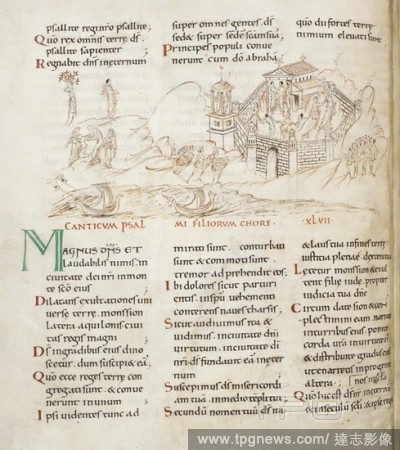 psallite regi nr̄o psallite
Quo rex omnis terrę ds̄
psallite sapienter
Regnabit dn̄s in ęternum
super omnes gentes. ds̄
sedet super sedē scām suā;
Principes populi conve
nerunt cum dō abraha
quō dii fortes terrę
nimium elevati sunt
CANTICUM PSAL
MI FILIORUM CHORE·
XLVII·
MAGNUS DN̄S ET
laudabilis nimis. in
civitate dei nr̄i in mon
te scō eius
Dilatans exultationes uni
verse terrę. mons sion
latera aquilonis civi
tas regis magni
Ds̄ in gradibus eius dino
scetur. dum suscipi& eā;
Quō ecce reges terrę con
gregati sunt. & conve
nerunt in unum
Ipsi videntes tunc ad
mirati sunt. conturbati
sunt & commoti sunt.
tremor adprehendit eos.
Ibi dolores sicut parturi
entis. in spū vehementi
conterens naves tharsis;
Sicut audivimus ita &
vidimus. in civitate dn̄i
virtutum. in civitate di
nr̄i. ds̄ fundavit eā in ęter
num
Suscepimus ds̄ misericordi
am tuā in medio templi tui;
Secundū nomen tuū ds̄ ita
& laus tua in fines terrę
iustitia plena ē dextera tua
Letetur mons sion & exul
tent filię iudę. propter
iudicia tua dn̄e
Circumdate sion & con
plectimini eam. narrate
in turribus eius. ponite
corda vr̄a in virtute eius
& distribuite gradus eius
ut enarretis in progenie
altera;
Quō hic est ds̄ ds̄ nr̄ in ęternū
www.tpgnews.com / 達志影像